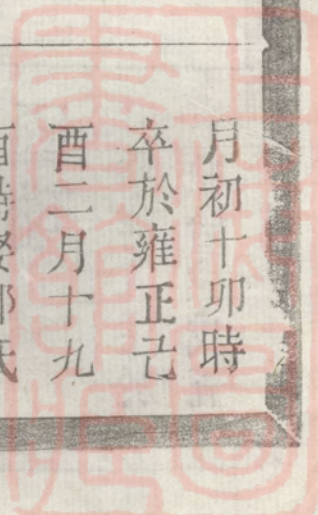 月初十卯時
卒於雍正己
酉二月十九
酉時娶